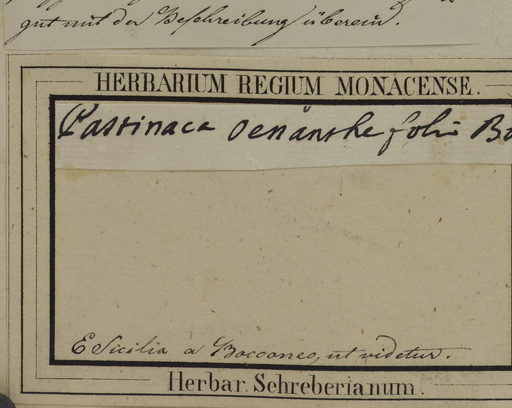 gut mit der Beschreibung überein.
HERBARIUM REGIUM MONACENSE.
Pastinaca oenanthe folio Bo
E Sicilia a Boccone, ut videtur.
Herbar. Schreberianum.